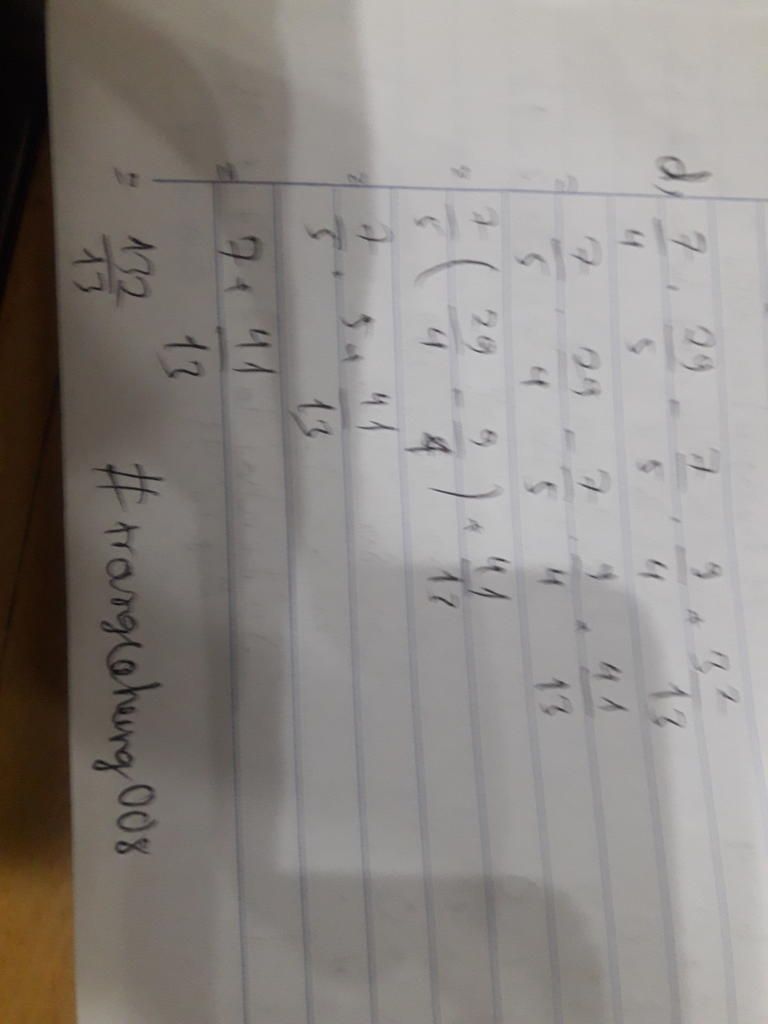 d, 7/4 . 29/5 - 7/5 . 9/4 + 3 2/13
= 7/5 . 29/4 - 7/5 . 9/4 + 41/13
= 7/5 ( 29/4 - 9/4 ) + 41/13
= 7/5 . 5 + 41/13
= 7 + 41/13
= 132/13
#trangchung008